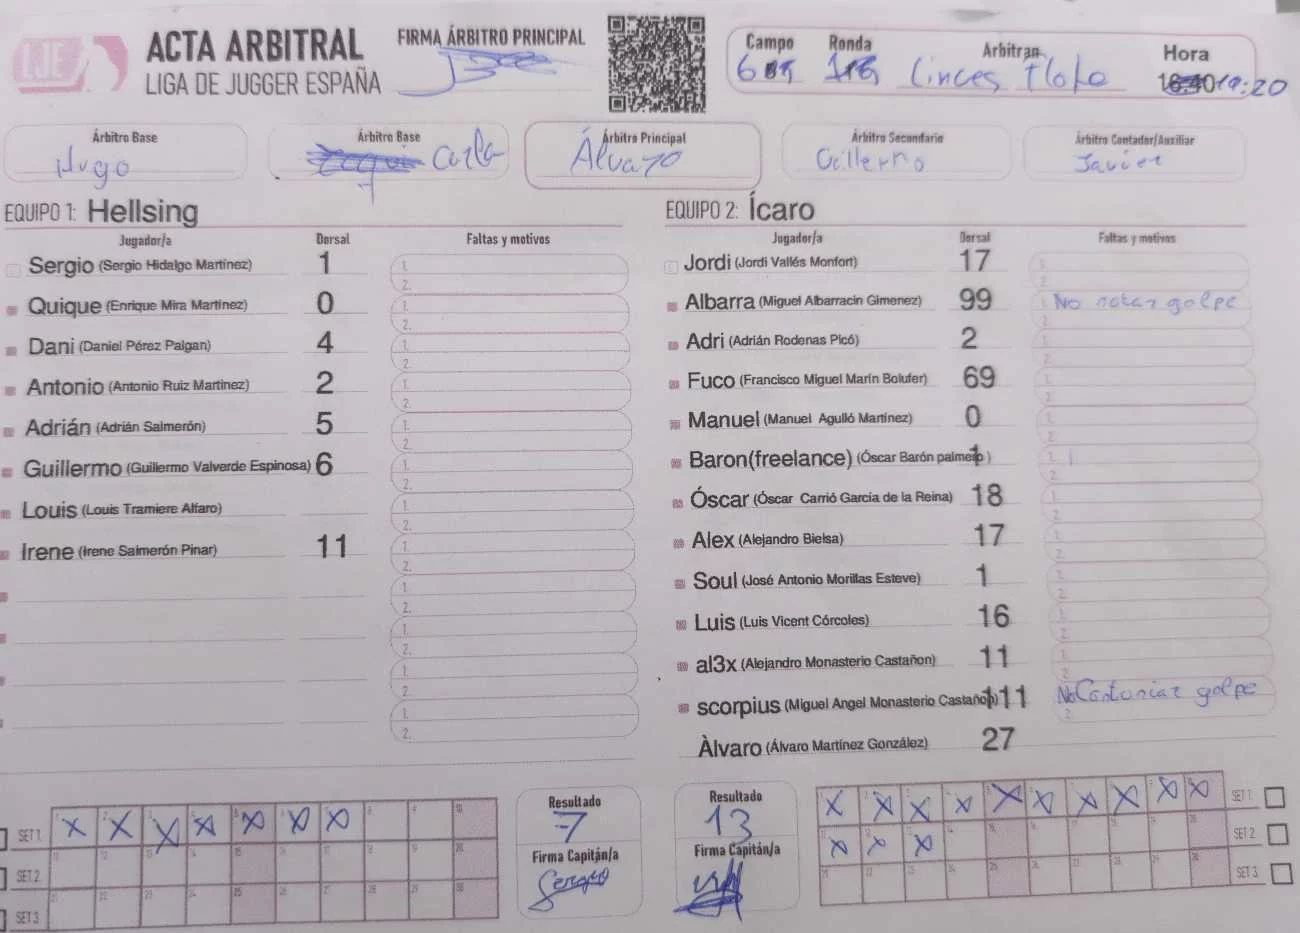 LJE
ACTA ARBITRAL
LIGA DE JUGGER ESPAÑA
FIRMA ÁRBITRO PRINCIPAL
Campo Ronda Arbitran Hora
Linces Tlolo 19:20
Árbitro Base
Hugo
Árbitro Base
Carla
Árbitro Principal
Álvaro
Árbitro Secundario
Guillermo
Árbitro Contador/Auxiliar
Javier
EQUIPO 1: Hellsing
Jugador/a Dorsal Faltas y motivos
Sergio (Sergio Hidalgo Martínez) 1
Quique (Enrique Mira Martínez) 0
Dani (Daniel Pérez Palgan) 4
Antonio (Antonio Ruiz Martinez) 2
Adrián (Adrián Salmerón) 5
Guillermo (Guillermo Valverde Espinosa) 6
Louis (Louis Tramiere Alfaro)
Irene (Irene Salmerón Pinar) 11
EQUIPO 2: Ícaro
Jugador/a Dorsal Faltas y motivos
Jordi (Jordi Vallés Monfort) 17
Albarra (Miguel Albarracin Gimenez) 99 1. No notar golpe
Adri (Adrián Rodenas Picó) 2
Fuco (Francisco Miguel Marín Bolufer) 69
Manuel (Manuel Agulló Martínez) 0
Baron(freelance) (Óscar Barón palmero ) 1
Óscar (Óscar Carrió García de la Reina) 18
Alex (Alejandro Bielsa) 17
Soul (José Antonio Morillas Esteve) 1
Luis (Luis Vicent Córcoles) 16
al3x (Alejandro Monasterio Castañon) 11
scorpius (Miguel Angel Monasterio Castañon) 111 No Contoniar golpe
Àlvaro (Álvaro Martínez González) 27
SET 1.
SET 2.
SET 3.
Resultado
7
Firma Capitán/a
Sergio
Resultado
13
Firma Capitán/a
SET 1.
SET 2.
SET 3.